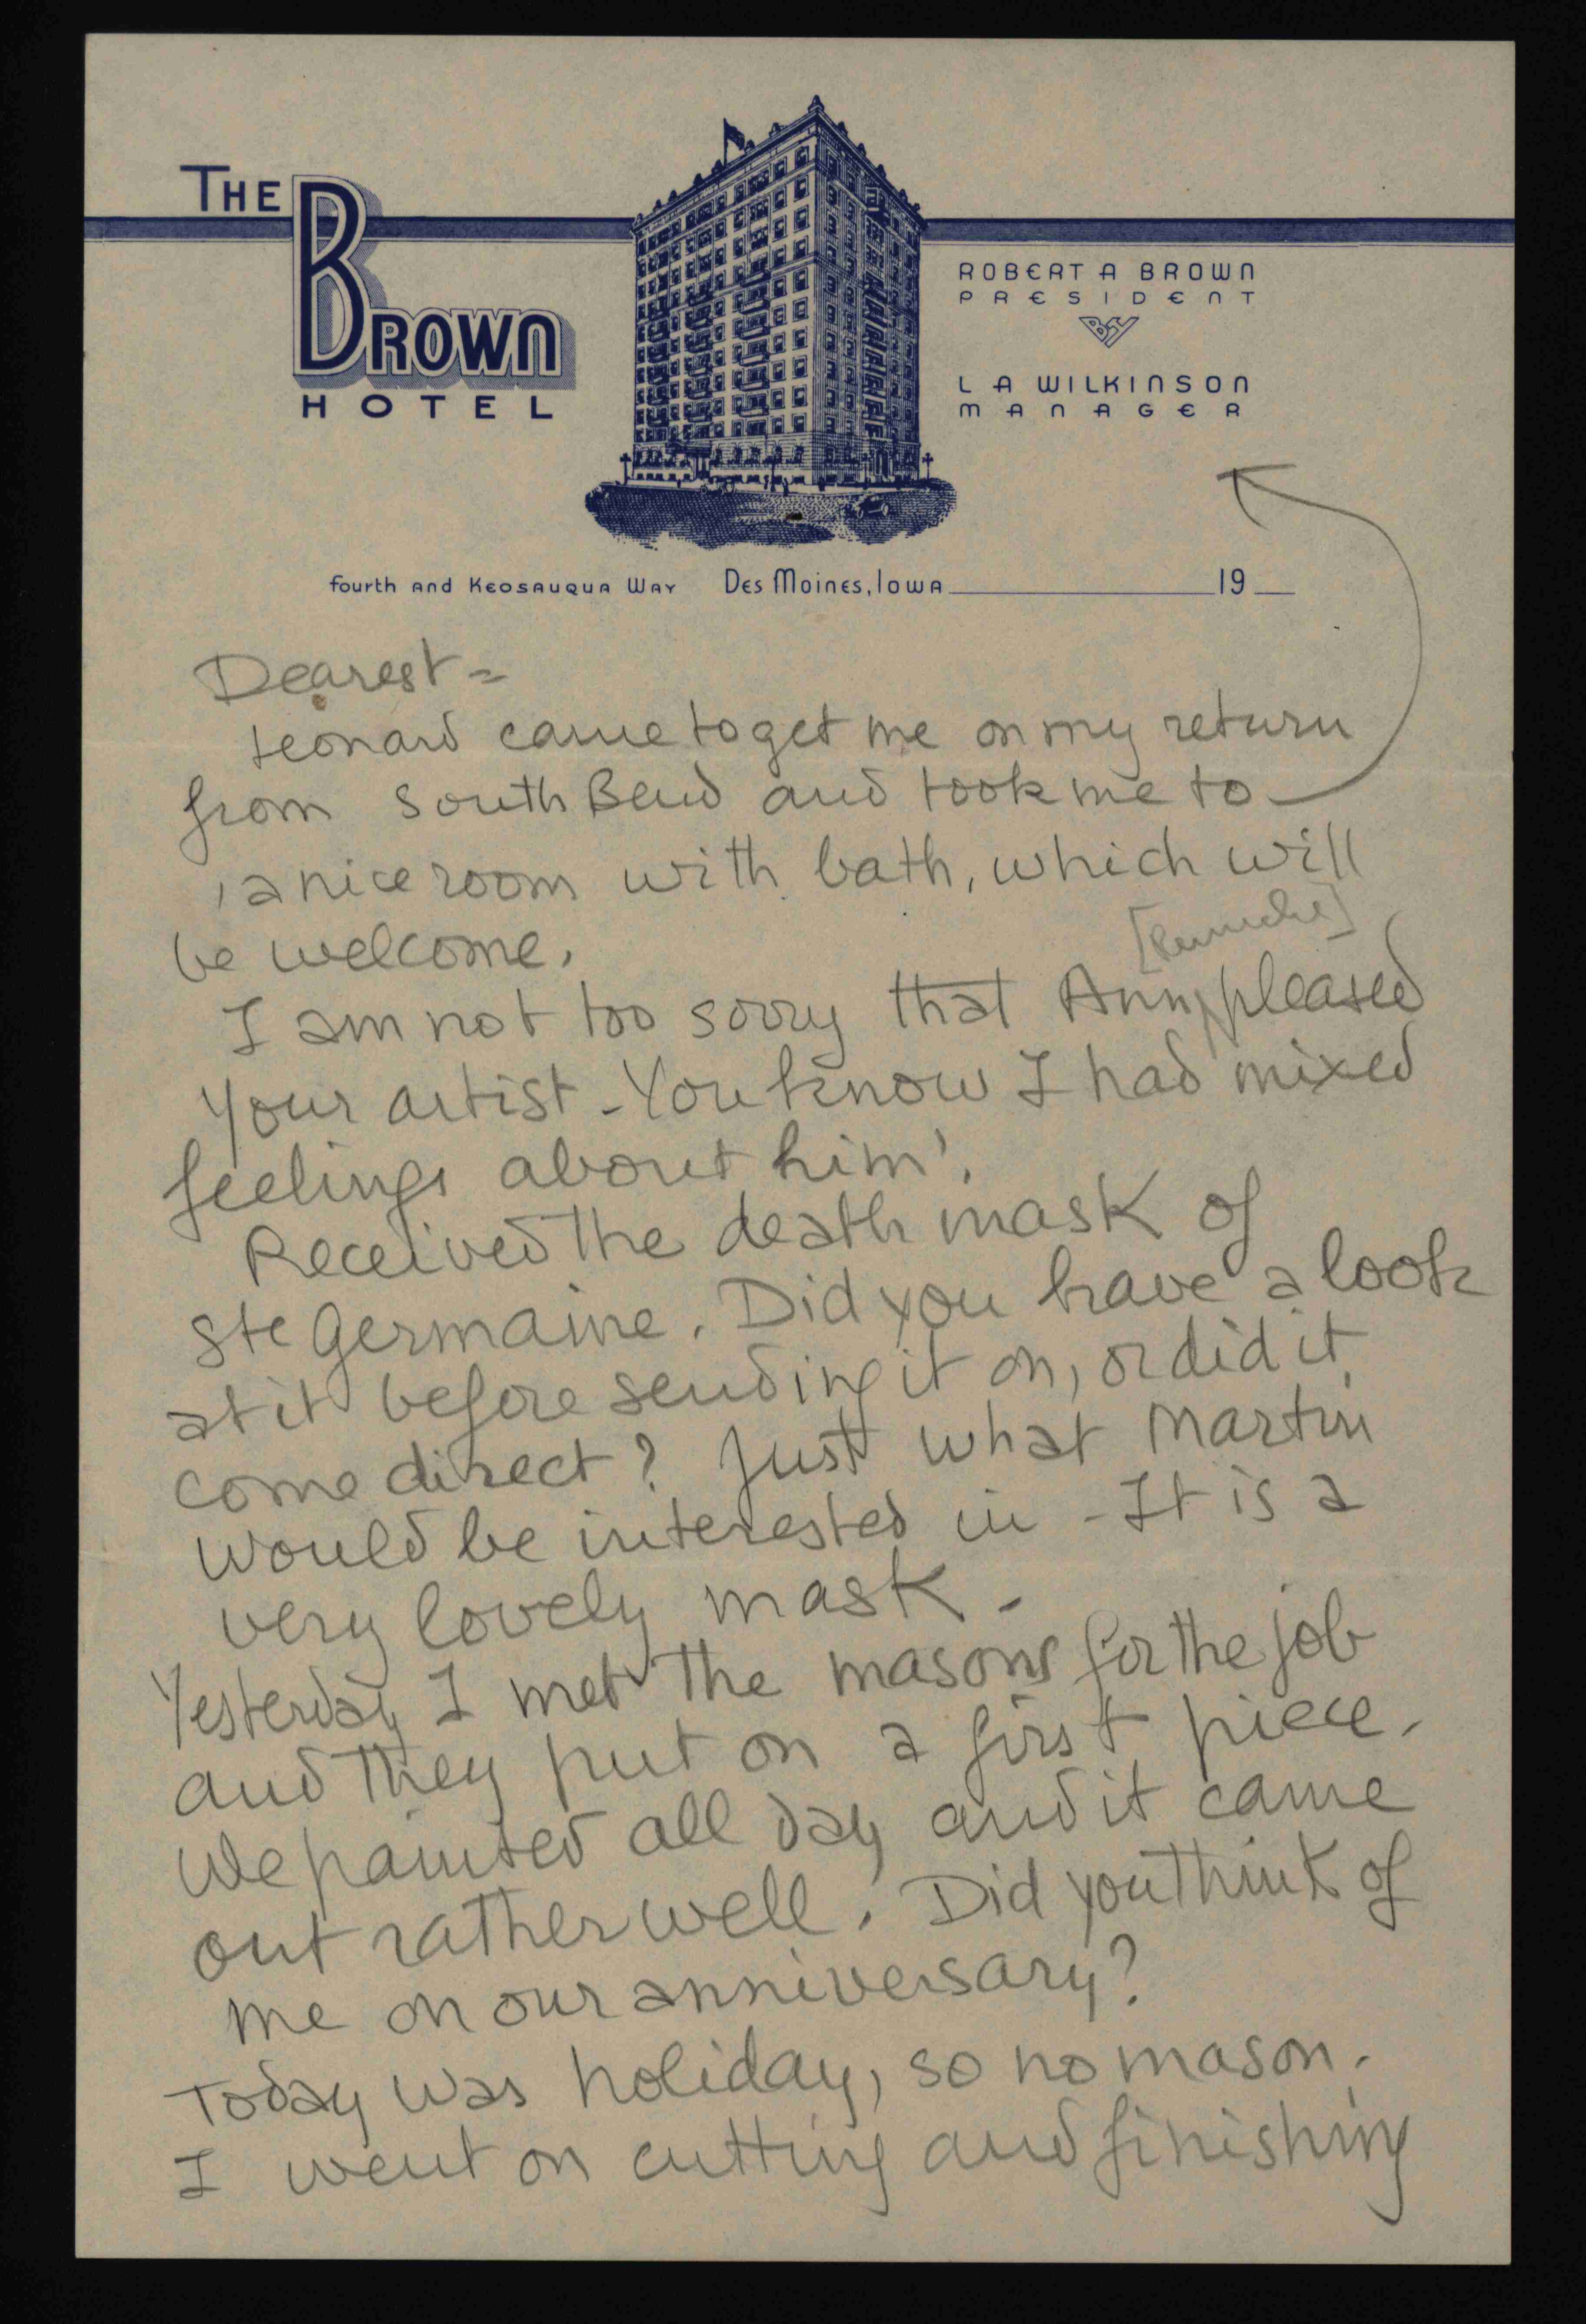 THE
BROWN
HOTEL
ROBERT A BROWN
PRESIDENT
L A WILKINSON
MANAGER
Fourth and Keosauqua Way Des Moines, Iowa 19
Dearest -
Leonard came to get me on my return
from South Bend and took me to
a nice room with bath, which will
be welcome.
I am not too sorry that Ann pleased
your artist - You know I had mixed
feelings about him!
Received the death mask of
Ste Germaine. Did you have a look
at it before sending it on, or did it
come direct? Just what Martin
would be interested in - It is a
very lovely mask -
Yesterday I met the masons for the job
and they put on a first piece.
We painted all day and it came
out rather well. Did you think of
me on our anniversary?
Today was holiday, so no mason.
I went on cutting and finishing